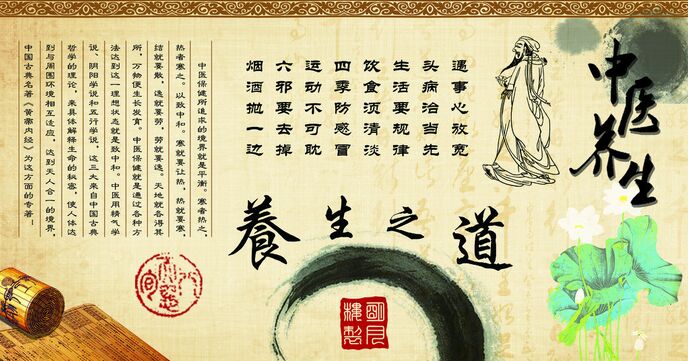 中医养生
遇事心放宽
头病治当先
生活要规律
饮食须清淡
四季防感冒
运动不可耽
六邪要去掉
烟酒抛一边
養生之道
中医保健所追求的境界就是平衡。寒者热之，
热者寒之，以致中和。寒就要让热，热就要寒，
结就要散，逸就要劳，劳就要逸。天地就各得其
所，万物便生长发育。中医保健就是通过各种方
法达到这一理想状态就是致中和。中医用精气学
说、阴阳学说和五行学说，这三大来自中国古典
哲学的理论，来具体解释生命的秘密，使人体达
到与周围环境相互适应，达到天人合一的境界，
中国古典名著《黄帝内经》为这方面的专著！